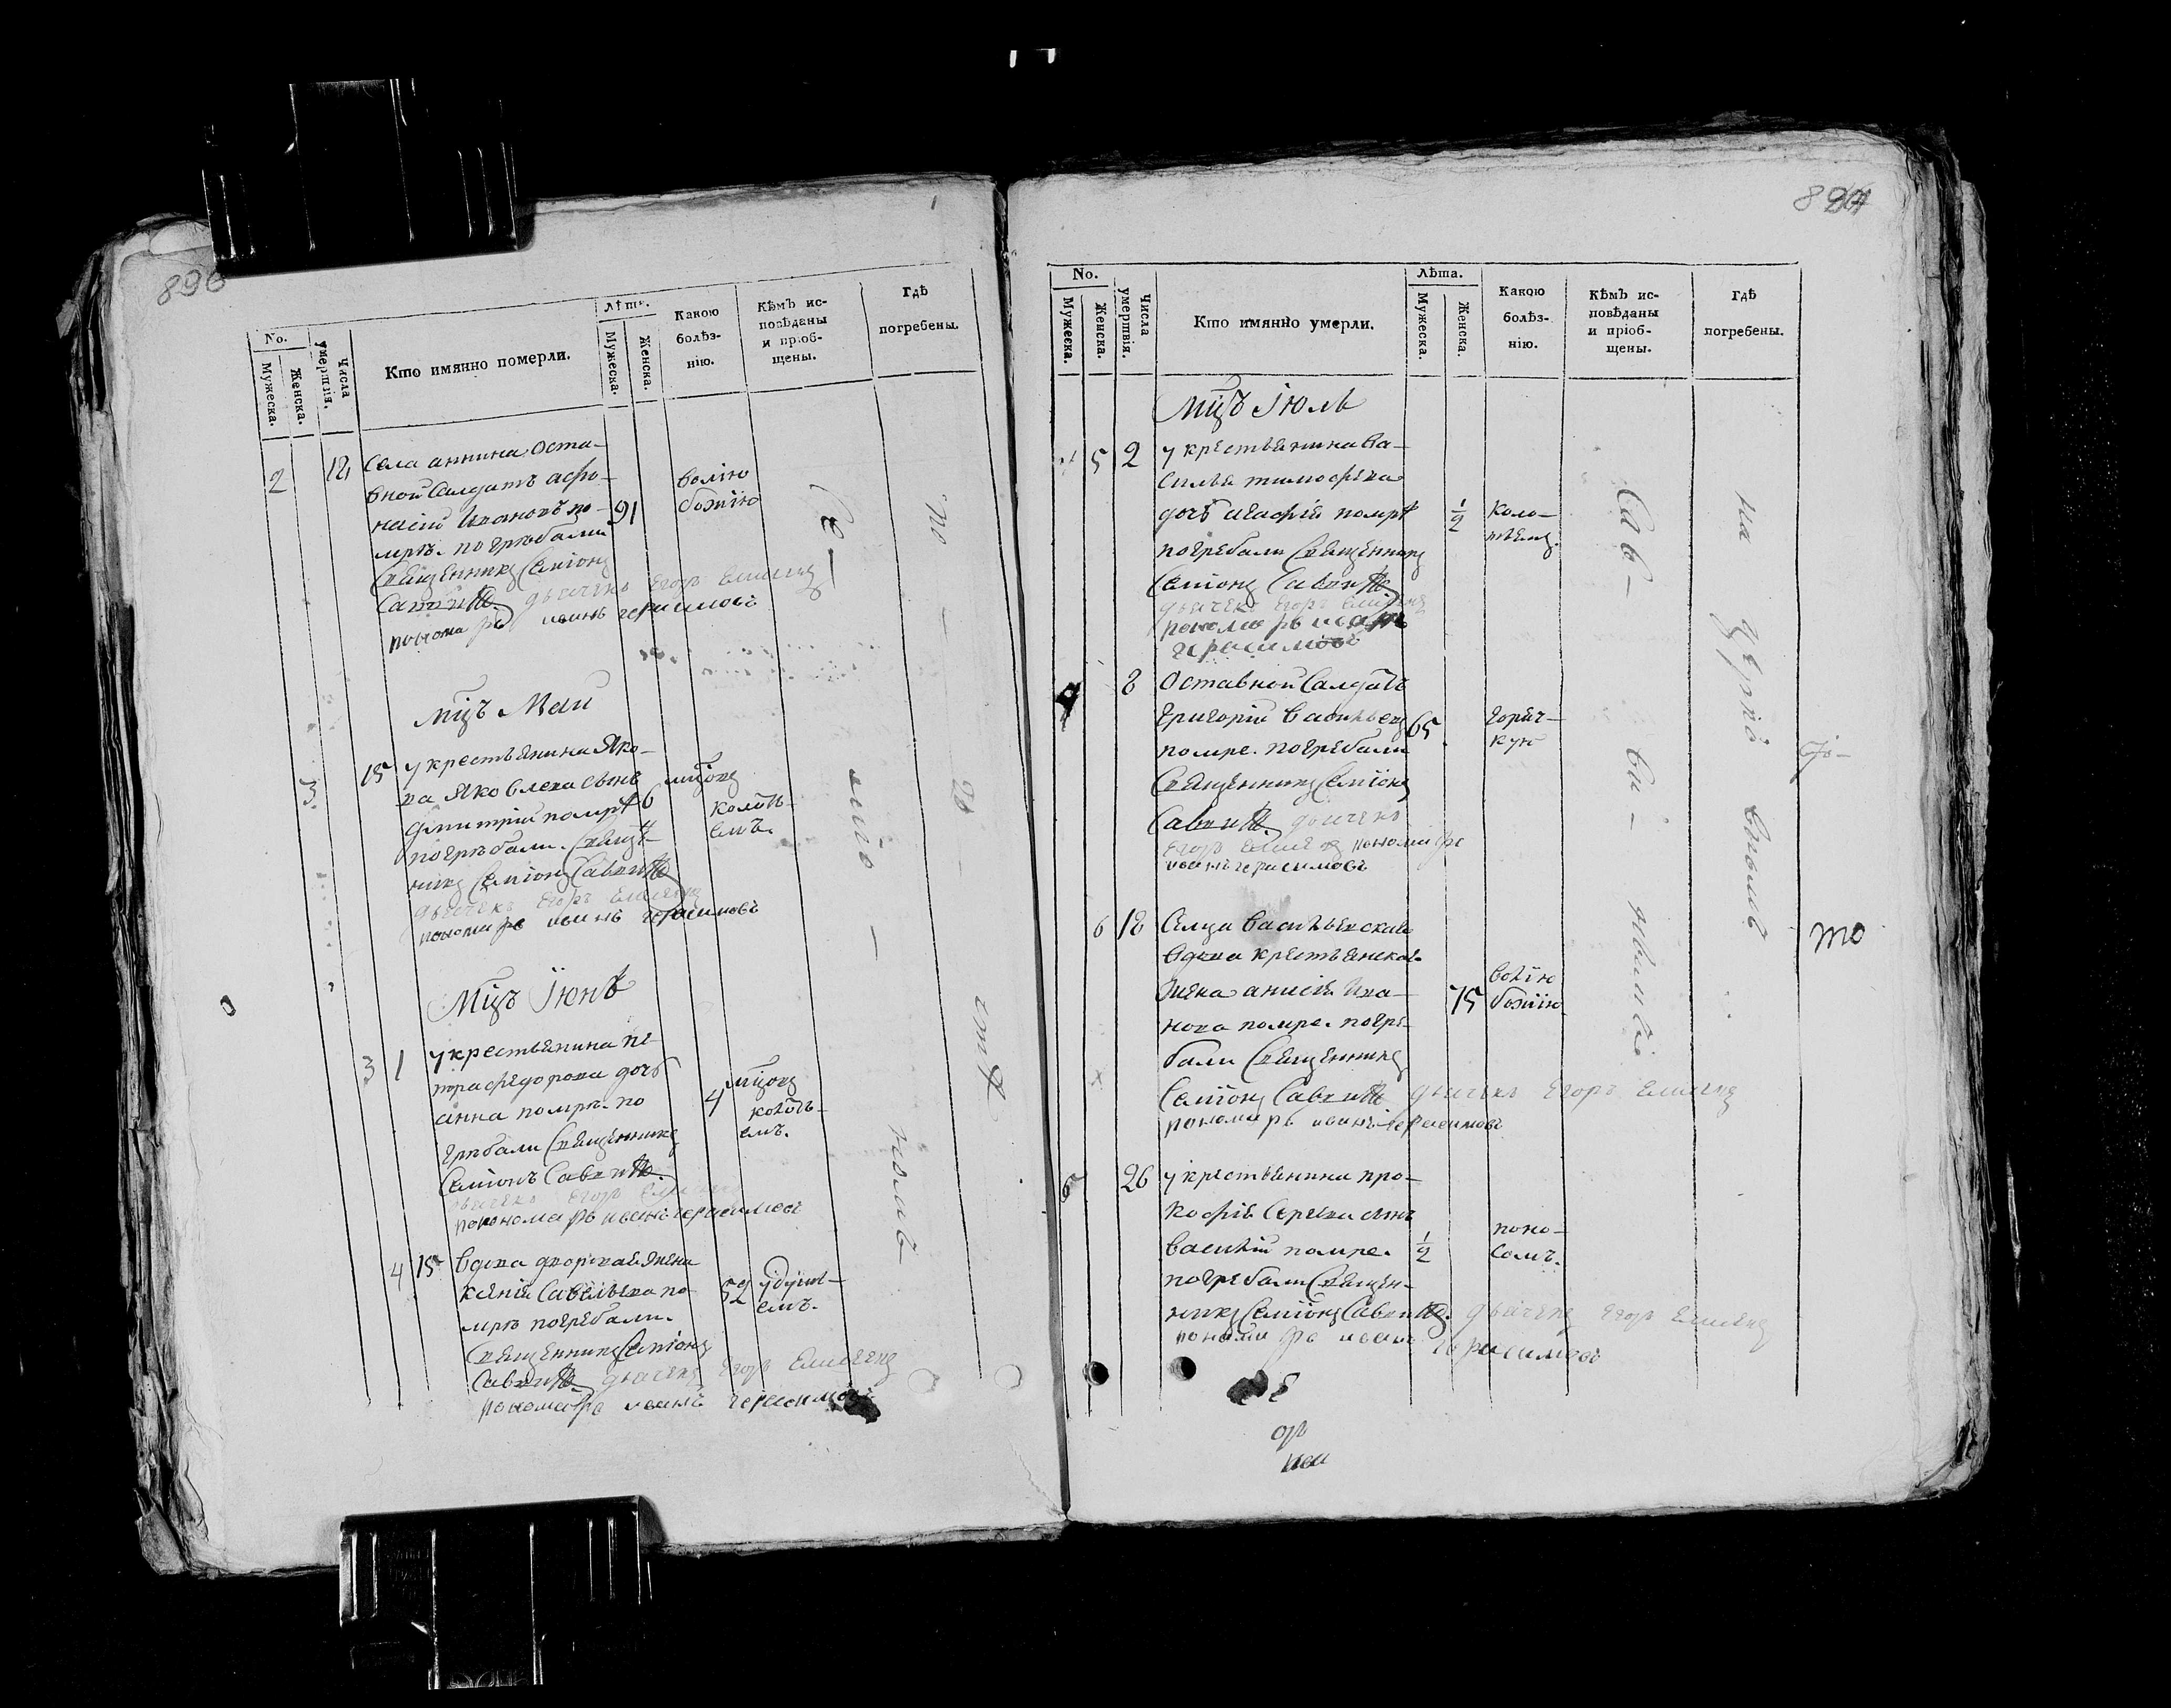 896
No.
Мужеска.
Женска.
Числа умертвія.
Кто имянно померли.
Мужеска.
Женска.
Какою болѣз-
нію.
Кѣмъ ис-
повѣданы
и пріоб-
щены.
Гдѣ
погребены.
2
12
Села аннина Оста-
вной Салдатъ афо-
насіи Ивановъ по-
мрѣ. погрѣбали
Священникъ Семіонъ
Саввинъ дьячекъ Егоръ
пономарь иванъ герасимовъ
91
волію
божіею
мцъ Маи
3
15
у крестьянина Яко-
ва Яковлева сынъ
Дмитрій помрѣ
погрѣбали. Священ-
никъ Семіонъ Саввинъ
дьячекъ Егоръ
пономарь иванъ герасимовъ
6 мцовъ
колотъ-
емъ.
Мцъ Іюнь
3
1
у крестьянина пе-
тра федорова дочь
анна помрѣ. по
грѣбали Священникъ
Семіонъ Саввинъ
дьячекъ Егоръ
пономарь иванъ герасимовъ
4
мцовъ
колотъ-
емъ.
4
15
вдова дворовая жена
Ксенія Савельева по-
мрѣ погребали.
Священникъ Семіонъ
Саввинъ дьячекъ Егоръ
пономарь иванъ герасимовъ
52
удушь-
емъ.
No.
Мужеска.
Женска.
Числа умертвія.
Кто имянно умерли.
Лѣта.
Мужеска.
Женска.
Какою
болѣз-
нію.
Кѣмъ ис-
повѣданы
и пріоб-
щены.
Гдѣ
погребены.
мцъ Іюль
5
2
у крестьянина Ва-
силья тимофѣева
дочь агафія помрѣ
погребали Священникъ
Семіонъ Саввинъ
дьячекъ Егоръ
пономарь иванъ
герасимовъ
1/2
коло-
тьемъ.
8
Оставной Салдатъ
григорій Васильевъ
помре. погребали
Священникъ Семіонъ
Саввинъ дьячекъ
Егоръ пономарь
иванъ герасимовъ
65
горяч-
кую
6
18
Сельца Васильевскаго
вдова крестьянская
жена анисія Ива-
нова помре. погре-
бали Священникъ
Семіонъ Саввинъ дьячекъ Егоръ
пономарь иванъ герасимовъ
75
волію
божіею
26
у крестьянина про-
кофія Сергѣева сынъ
василій помре.
погребали Священ-
никъ Семіонъ Саввинъ. дьячекъ Егоръ
пономарь иванъ герасимовъ
1/2
поно-
сомъ.
то